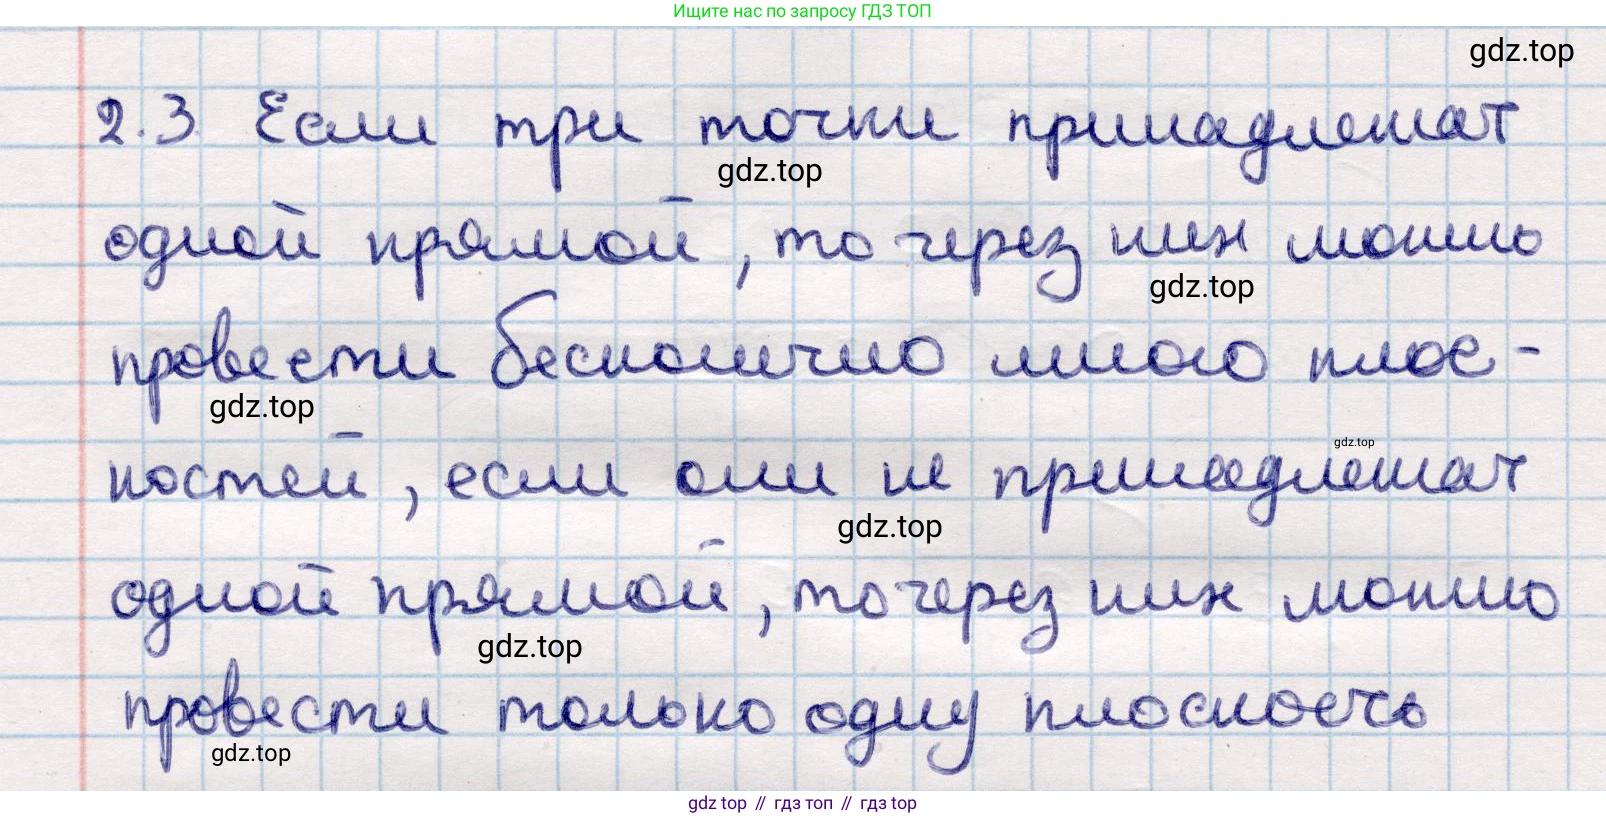 Ищите нас по запросу ГДЗ ТОП
gdz.top
2.3 Если три точки принадлежат
gdz.top
одной прямой, то через них можно
gdz.top
провести бесконечно много плос-
gdz.top
костей, если они не принадлежат
gdz.top
gdz.top
одной прямой, то через них можно
gdz.top
провести только одну плоскость
gdz.top
gdz top // гдз топ // гдз top